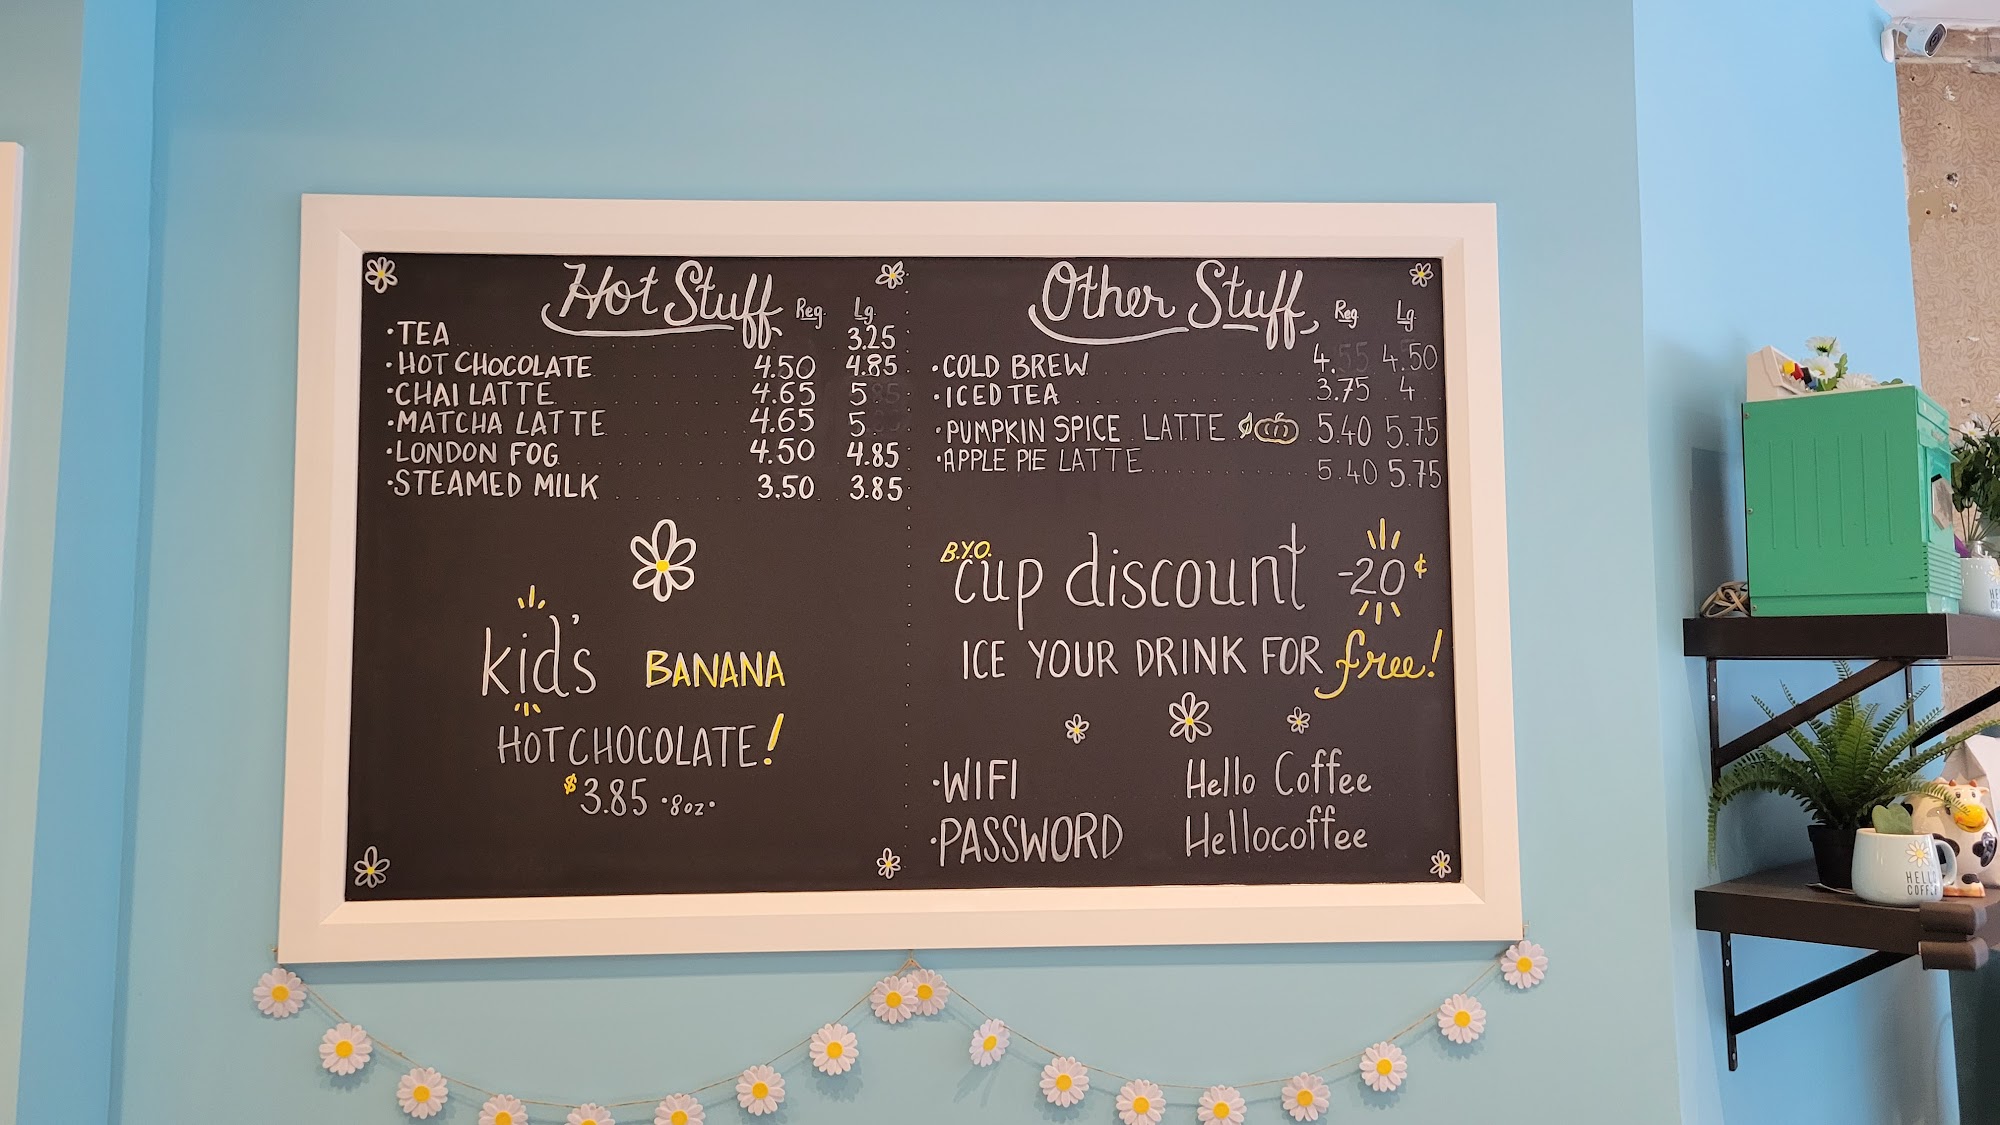 Hot Stuff Reg. Lg.
·TEA 3.25
·HOT CHOCOLATE 4.50 4.85
·CHAI LATTE 4.65 5
·MATCHA LATTE 4.65 5
·LONDON FOG 4.50 4.85
·STEAMED MILK 3.50 3.85
kid's BANANA
HOT CHOCOLATE!
$3.85 ·8oz·
Other Stuff Reg Lg
·COLD BREW 4. 4.50
·ICED TEA 3.75 4
·PUMPKIN SPICE LATTE 5.40 5.75
·APPLE PIE LATTE 5.40 5.75
B.Y.O.
cup discount -20¢
ICE YOUR DRINK FOR free!
·WIFI Hello Coffee
·PASSWORD Hellocoffee
HELLO
COFFEE